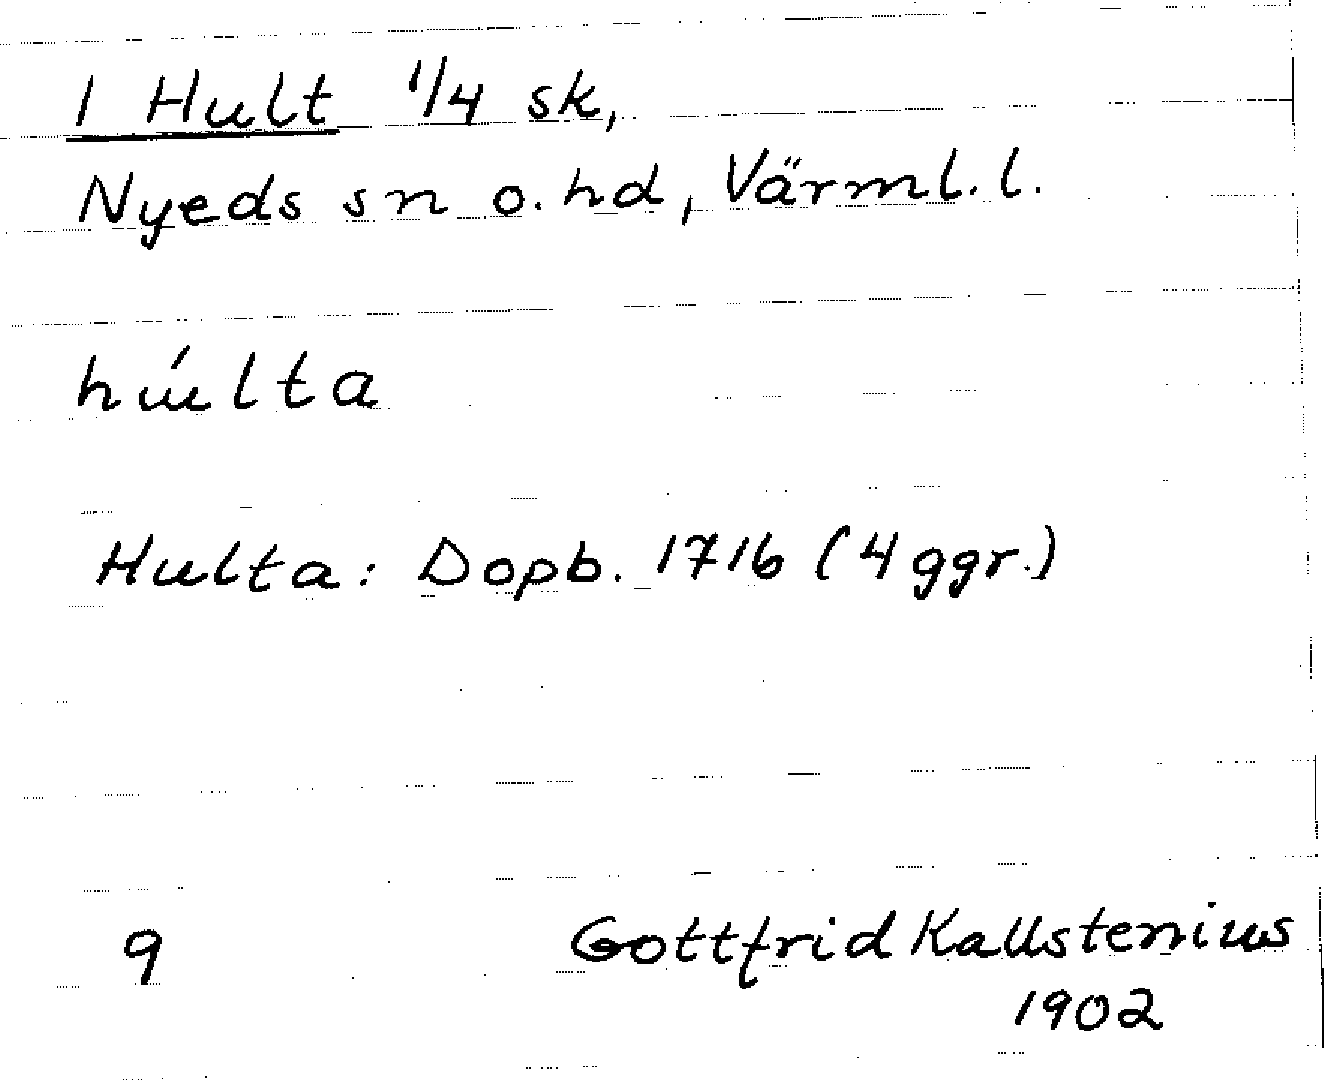 1 Hult 1/4 sk,
Nyeds sn o. hd, Värml. l.
húlta
Hulta: Dopb. 1716 (4 ggr.)
9 Gottfrid Kallstenius
1902